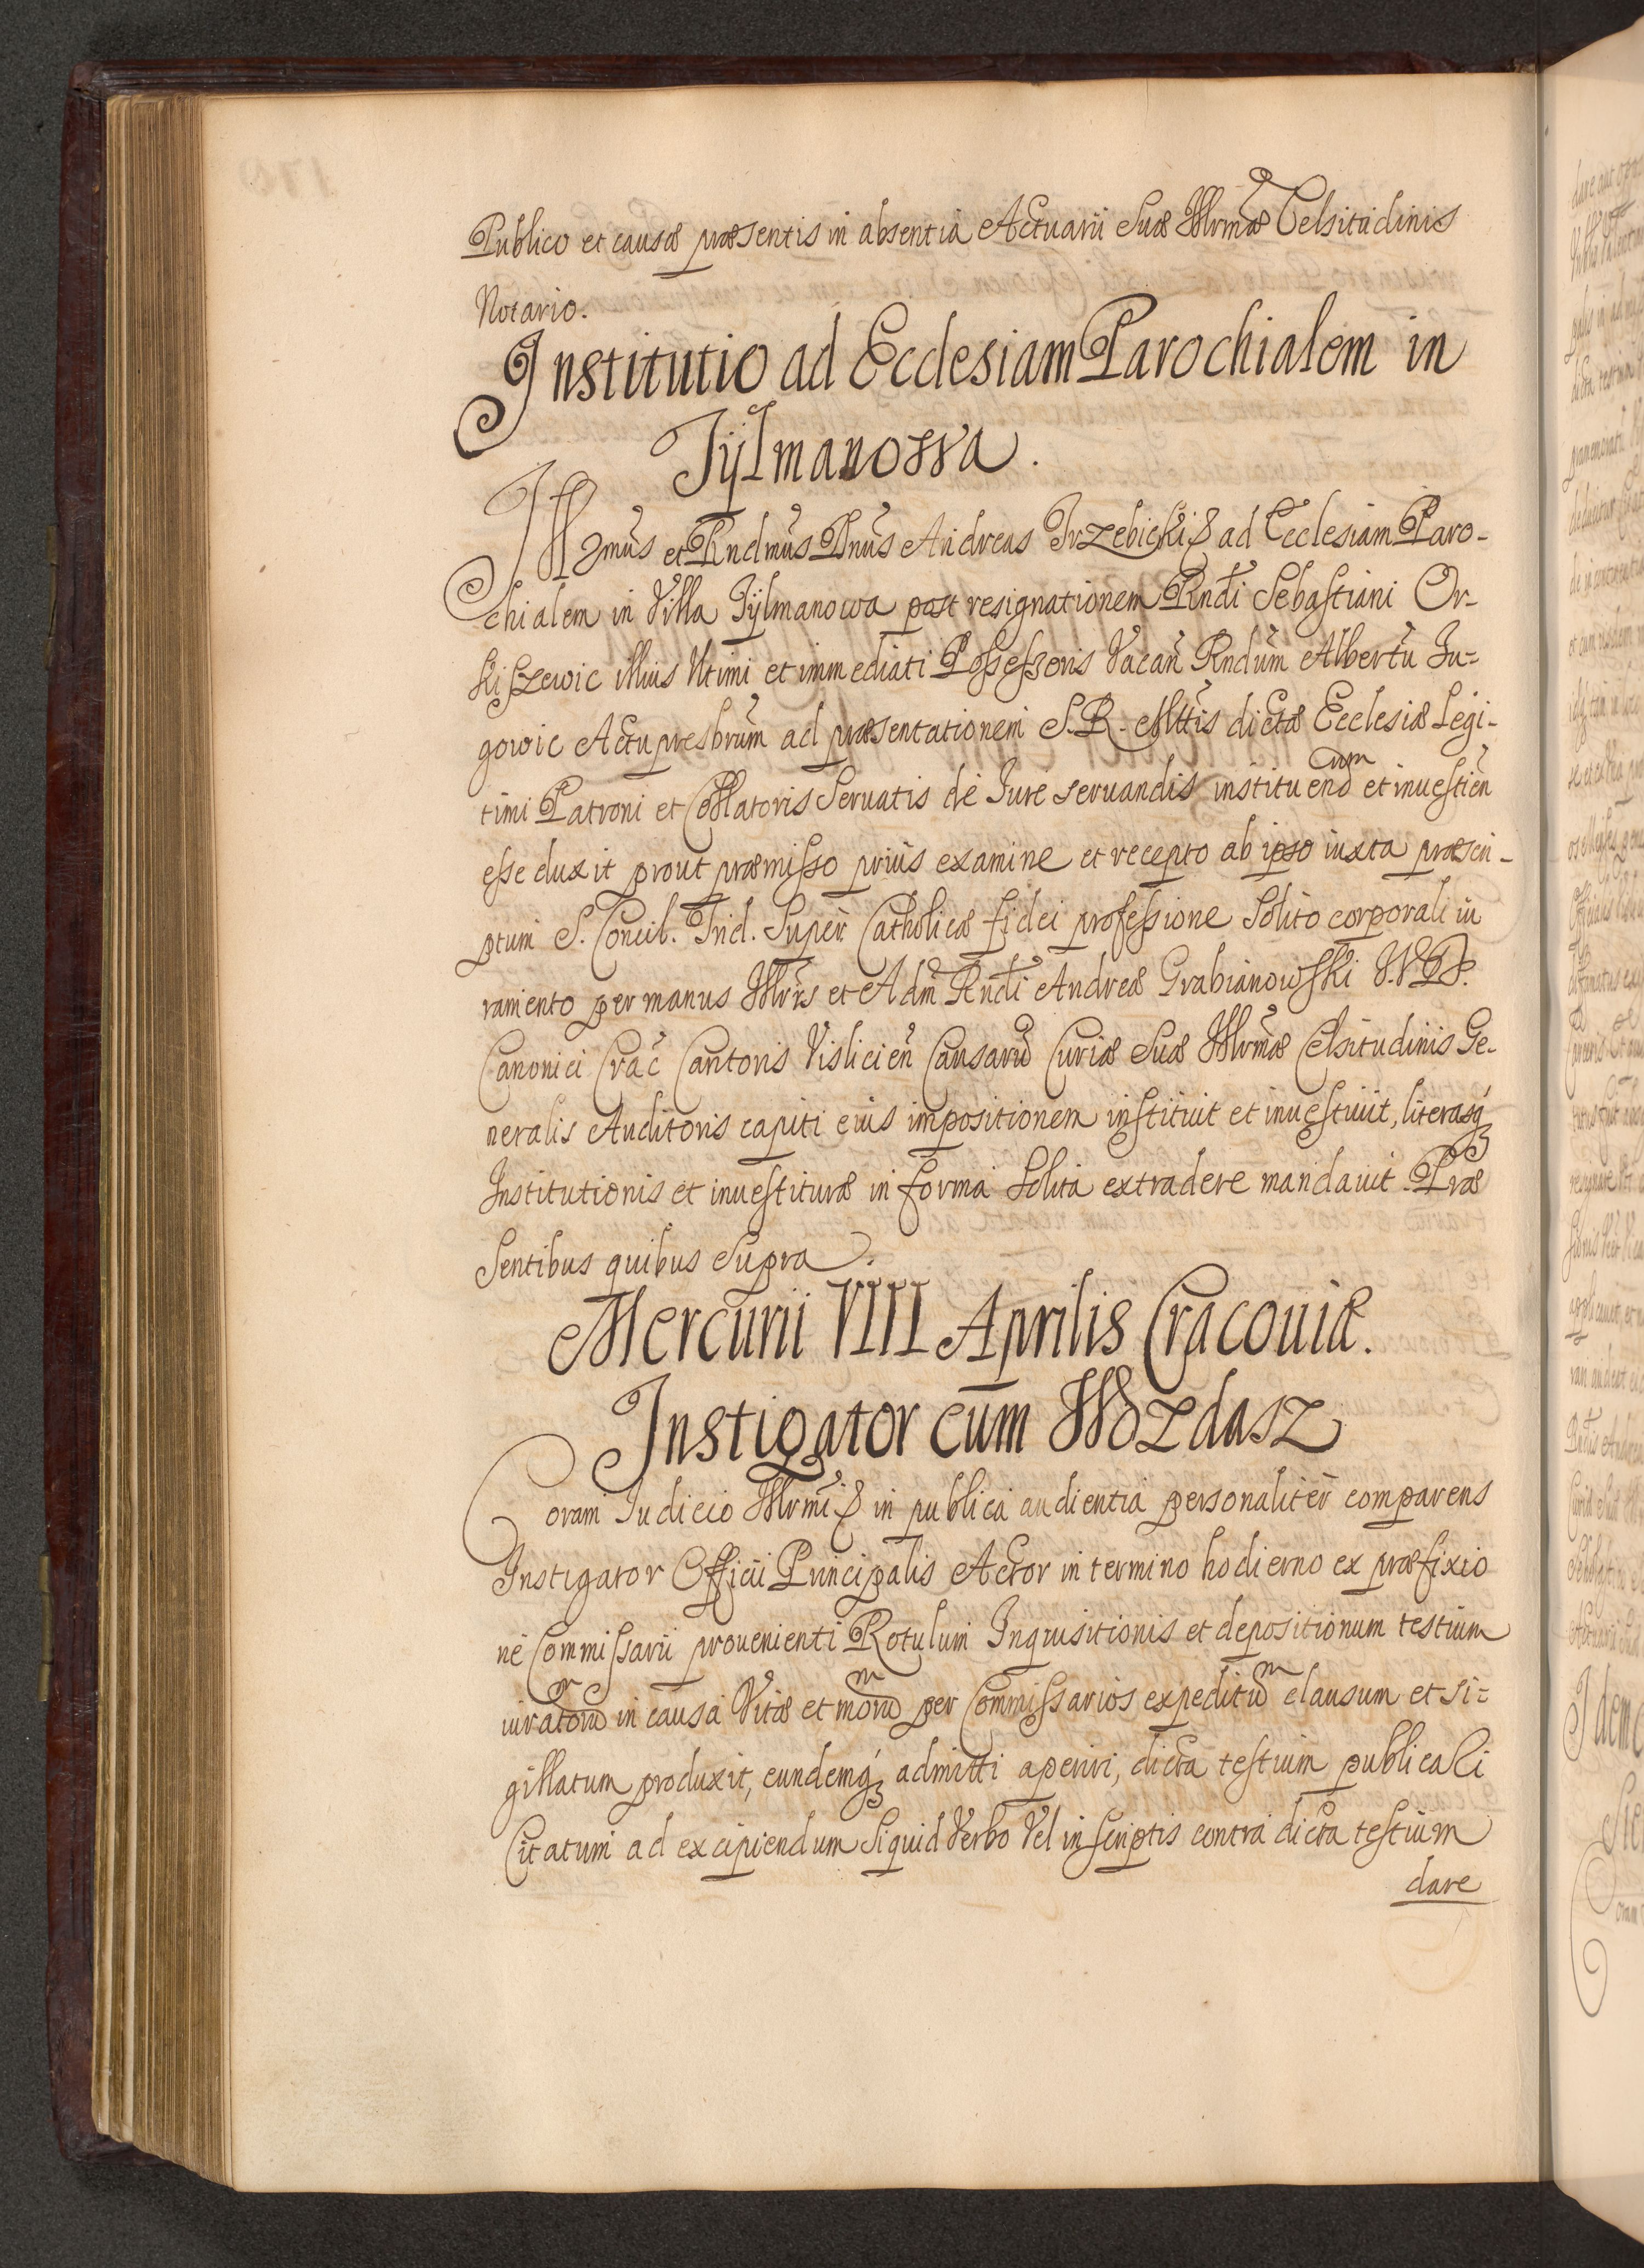 Publico et causæ præsentis in absentia Actuarii Suæ Illrmæ Celsitudinis
Notario.
Institutio ad Ecclesiam Parochialem in
Tÿlmanowa.
Illmus et Rndmus Dnus Andreas Trzebicki & ad Ecclesiam Paro-
chialem in Villa Tÿlmanowa post resignationem Rndi Sebastiani Or-
kiszewic illius Vltimi et immediati Possessoris Vacan Rndum Albertu Iu-
gowic Actu presbrum ad præsentationem S. R. Mttis dictæ Ecclesiæ Legi-
timi Patroni et Collatoris Seruatis de Iure seruandis instituendum et inuestien
esse duxit prout præmisso prius examine et recepto ab ipso iuxta præscri-
ptum S. Concil. Trid. Super Catholicæ fidei professione Solito corporali iu
ramento per manus Illris et Adm Rndi Andreæ Grabianowski V.I.D.
Canonici Crac Cantoris Vislicien Causaru Curiæ Suæ Illrmæ Celsitudinis Ge-
neralis Auditoris capiti eius impositionem instituit et inuestiuit, literasq
Institutionis et inuestituræ in forma Solita extradere mandauit Præ
Sentibus quibus Supra.
Mercurii VIII Aprilis Cracouiæ.
Instigator cum Wozdasz
Coram Iudicio Illrmi & in publica audientia personaliter comparens
Instigator Officii Principalis Actor in termino hodierno ex præfixio
ne Commissarii prouenienti Rotulum Inquisitionis et depositionum testium
iuratorum in causa Vitæ et morum per Commissarios expeditum clausum et si-
gillatum produxit, eundemq admitti aperiri, dicta testium publicari
Citatum ad excipiendum Siquid Verbo Vel in Scriptis contra dicta testium
dare